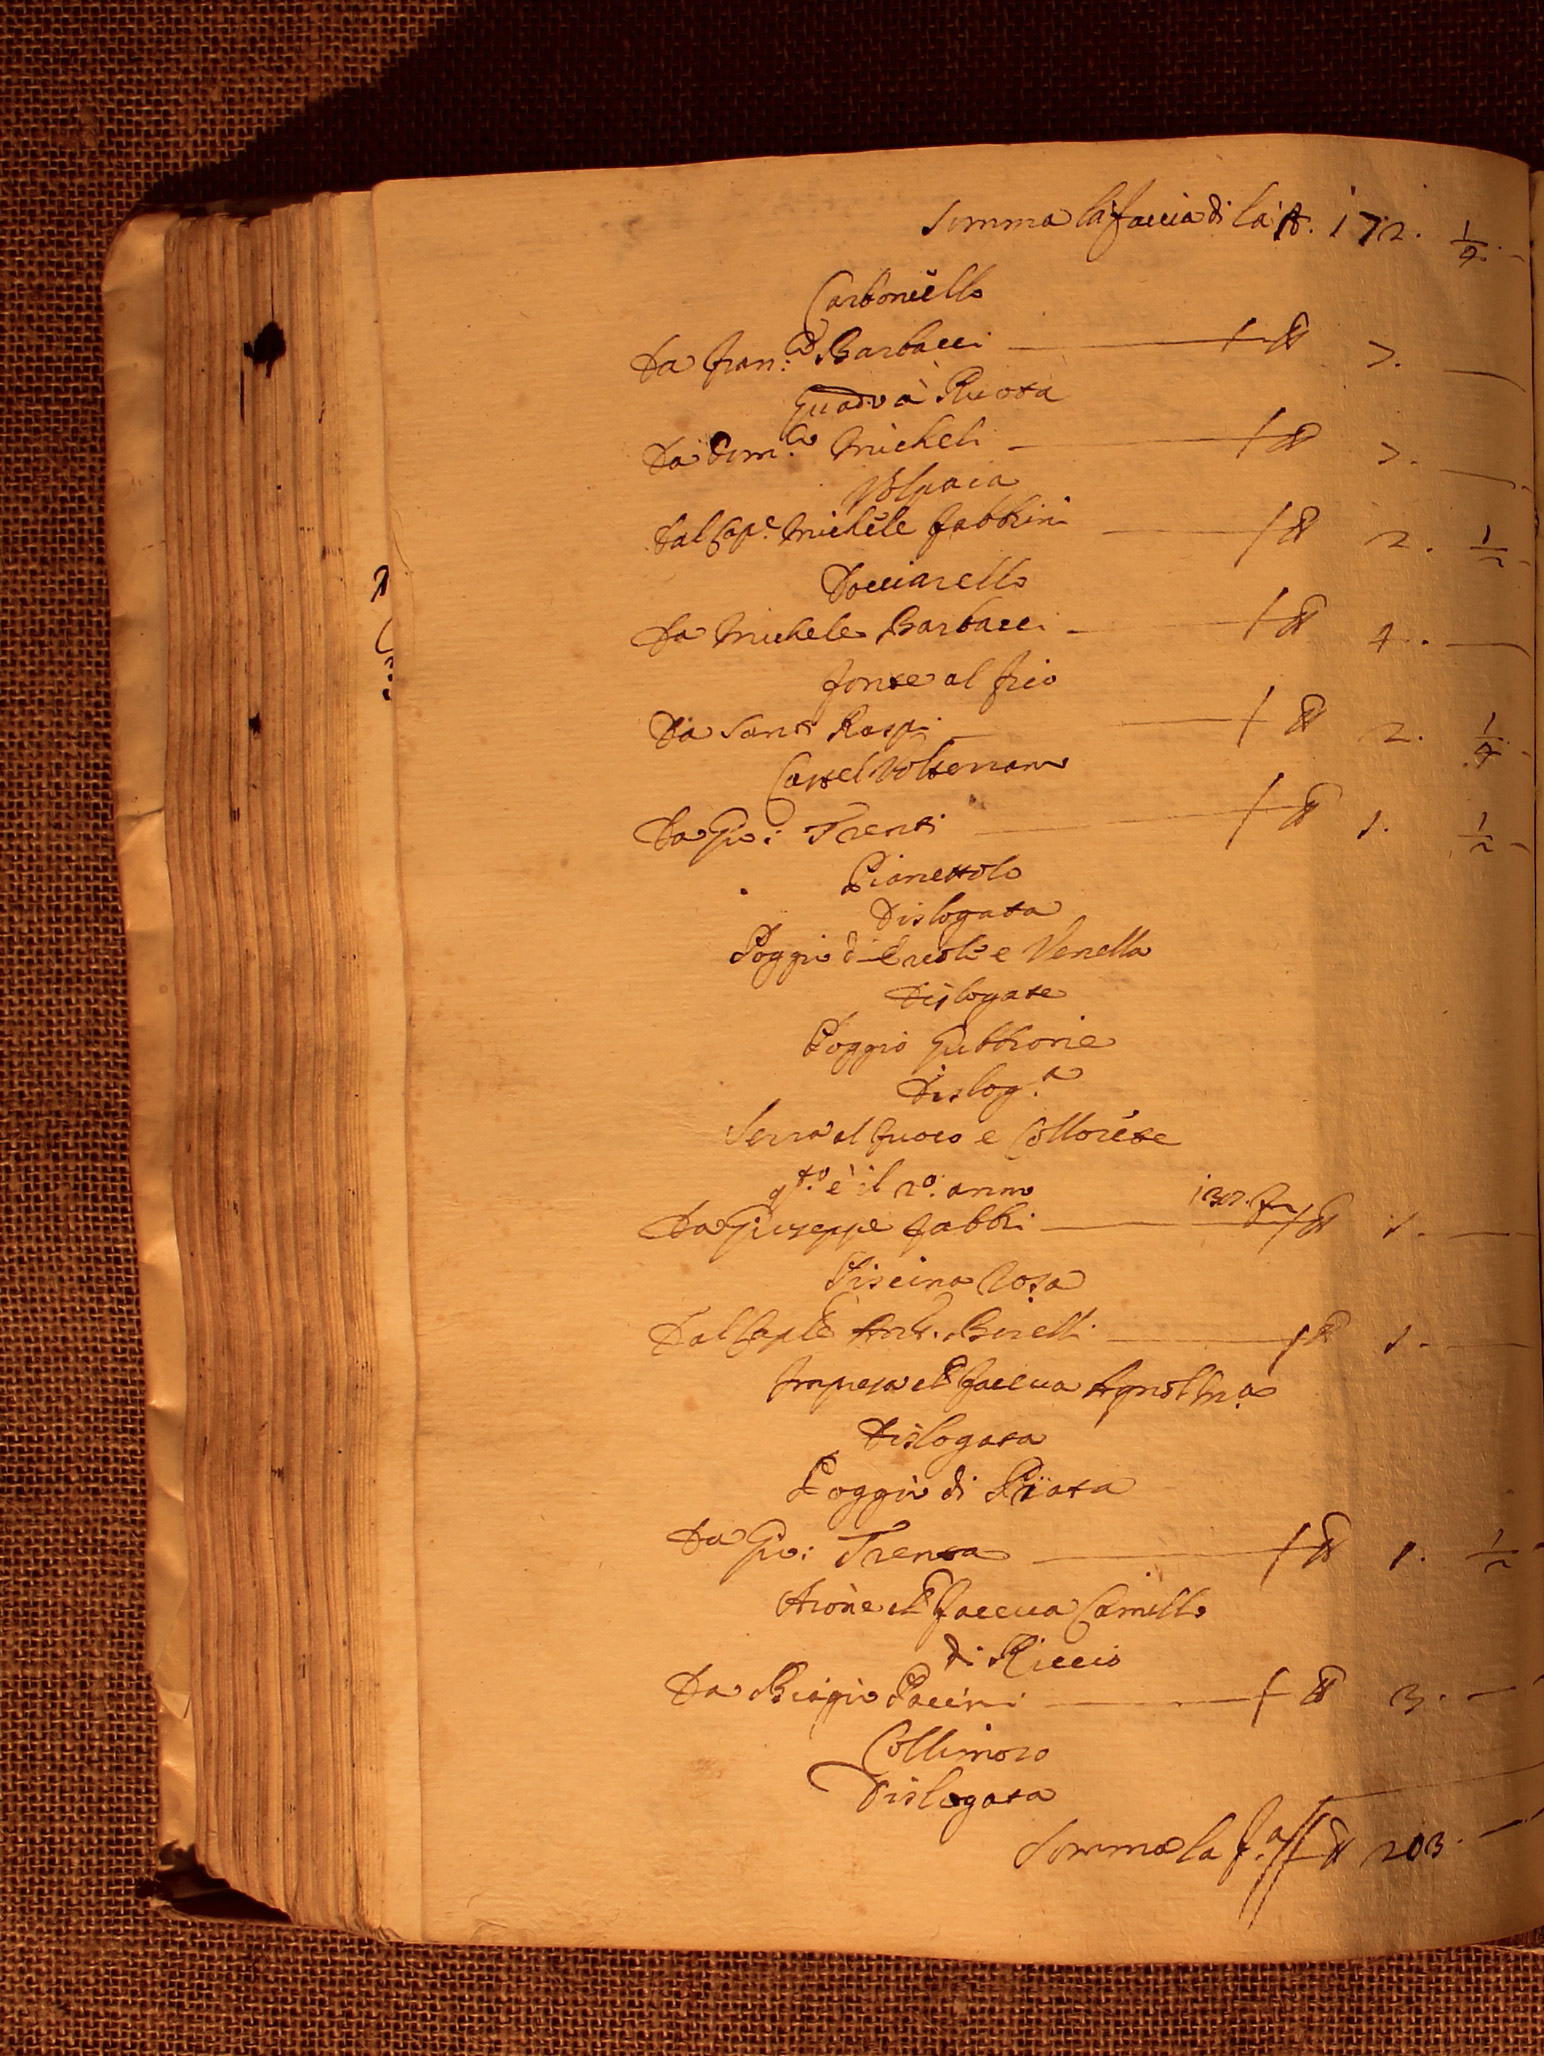 Somma la faccia di là tt. 172. 1/4.
Carboniello
Da Fran:co Barbacci tt 7.
Guado à Ruota
Da Dom.co Micheli tt 7.
Volpaia
Dal Cap.e Michele Fabbrini tt 2. 1/2
Docciarello
Da Michele Barbacci tt 4.
Fonte al Frio
Da Santi Raspi tt 2. 1/4
Castel Volterrano
Da Gio: Trenti tt 1. 1/2
Pianettolo
Dislogata
Poggio d'Ercole e Venella
Dislogate
Poggio Gubbione
Dislog.a
Serra al fuoco e
q.to è il 2.o anno
Da Giuseppe Fabbri tt 1.
Piscina Rosa
Dal Ant. Birelli tt 1.
faccia
Dislogata
Poggio di
Da Gio: Trenta tt 1. 1/2
faccia Camillo
di Riccio
Da Biagio Pacini tt 3.
Collimoro
Dislogata
Somma la f.a tt 203.